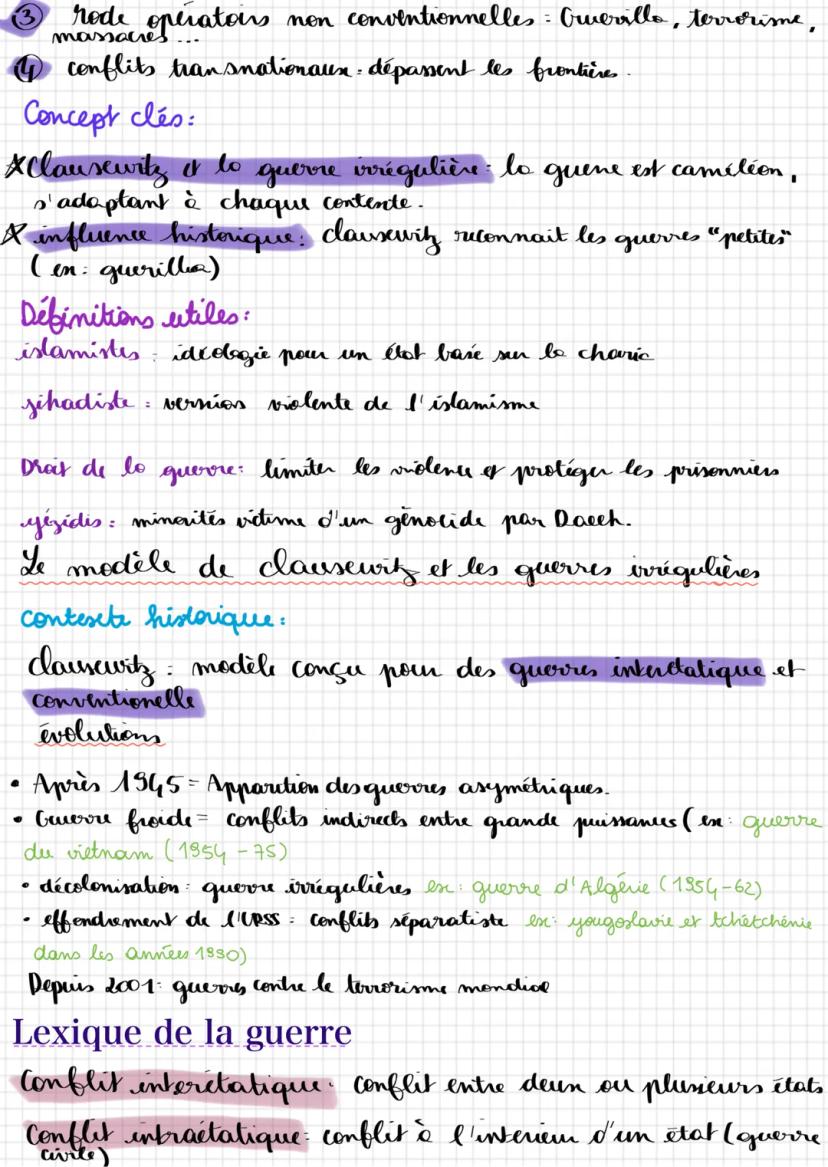 ③ Mode opératoirs non conventionnelles : Guerilla, terrorisme,
massacres ...
④ conflits transnationaux : dépassent les frontière.
Concept clés :
Clausewitz et la guerre irrégulière : la guerre est caméléon,
s'adaptant à chaque contexte.
influence historique : clausewitz reconnait les guerres "petites"
(ex : guerilla)
Définitions utiles :
islamistes : idéologie pour un état basé sur la charia
jihadiste : version violente de l'islamisme
Droit de la guerre : limiter les violence et protéger les prisonniers
yézidis : minorités victime d'un génocide par Daech.
Le modèle de clausewitz et les guerres irrégulières
contexte historique :
clausewitz : modèle conçu pour des guerres interétatique et
conventionelle
évolutions
• Après 1945 = Apparution des guerres asymétriques.
• Guerre froide = conflits indirects entre grande puissances (ex : guerre
du vietnam (1954-75)
• décolonisation : guerre irrégulières ex : guerre d'Algérie (1954-62)
• effondrement de l'URSS : conflits séparatiste ex : yougoslavie et tchétchénie
dans les années 1990)
Depuis 2001 : guerres contre le terrorisme mondial
Lexique de la guerre
Conflit interétatique : conflit entre deux ou plusieurs états
Conflit intraétatique : conflit à l'interieur d'un état (guerre
civile)